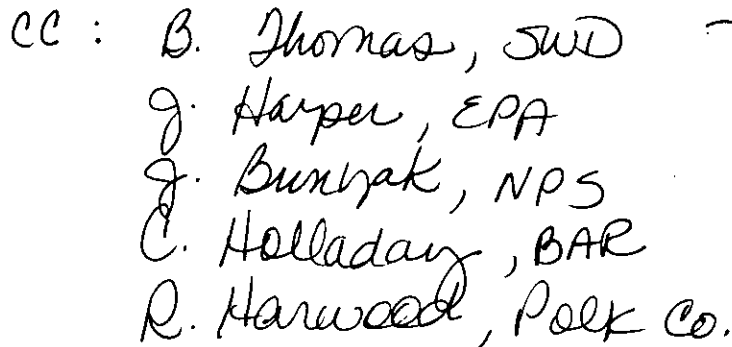 CC: B. Thomas, SWD
J. Harper, EPA
J. Bunyak, NPS
C. Holladay, BAR
R. Harwood, Polk Co.